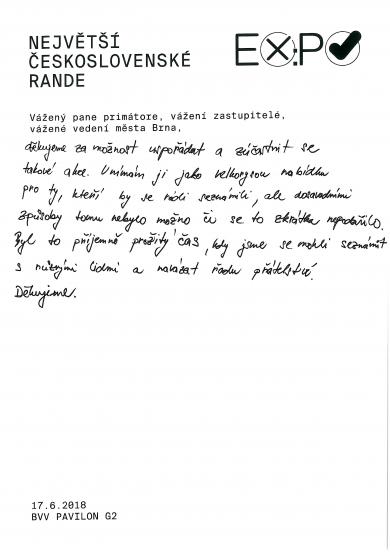 NEJVĚTŠÍ
ČESKOSLOVENSKÉ
RANDE
EXPO
Vážený pane primátore, vážení zastupitelé,
vážené vedení města Brna,
děkujeme za možnost uspořádat a zúčastnit se
takové akce. Vnímám ji jako velkorysou nabídku
pro ty, kteří by se rádi seznámili, ale dosavadními
způsoby tomu nebylo možno či se to zkrátka nepodařilo.
Byl to příjemně prožitý čas, kdy jsme se mohli seznámit
s různými lidmi a navázat řadu přátelství.
Děkujeme.
17.6.2018
BVV PAVILON G2